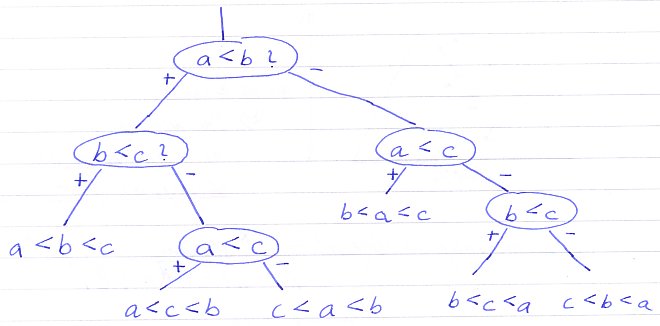 a<b?
+ -
b<c? a<c
+ - + -
b<a<c b<c
a<b<c a<c + -
+ -
a<c<b c<a<b b<c<a c<b<a